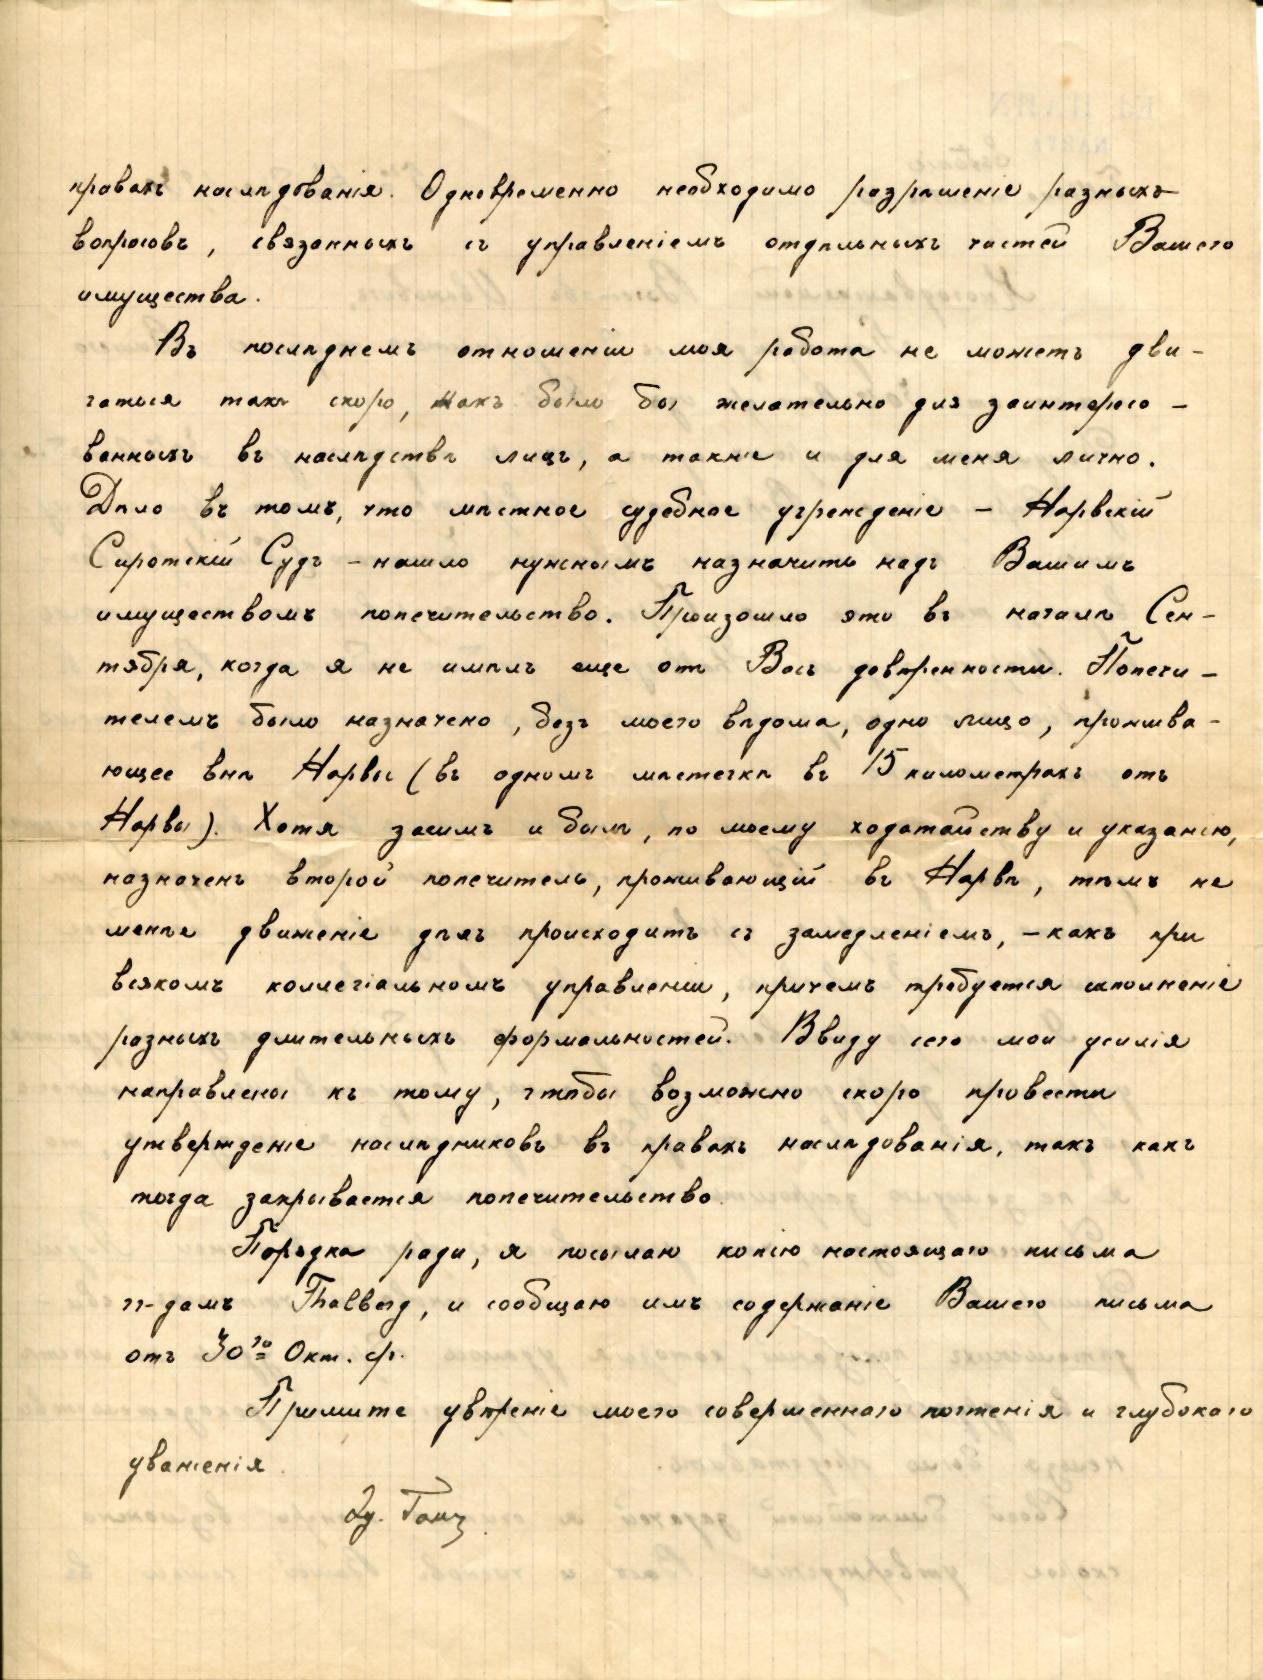 правахъ наслѣдованія. Одновременно необходимо разрѣшеніе разныхъ
вопросовъ, связанныхъ съ управленіемъ отдѣльныхъ частей Вашего
имущества.
Въ послѣднемъ отношеніи моя работа не можетъ дви-
гаться такъ скоро, какъ было бы желательно для заинтересо-
ванныхъ въ наслѣдствѣ лицъ, а также и для меня лично.
Дѣло въ томъ, что мѣстное судебное учрежденіе – Нарвскій
Сиротскій Судъ – нашло нужнымъ назначить надъ Вашимъ
имуществомъ попечительство. Произошло это въ началѣ Сен-
тября, когда я не имѣлъ еще отъ Васъ довѣренности. Попечи-
телемъ было назначено, безъ моего вѣдома, одно лицо, прожива-
ющее внѣ Нарвы (въ одномъ мѣстечкѣ въ 15 километрахъ отъ
Нарвы). Хотя засимъ и былъ, по моему ходатайству и указанію,
назначенъ второй попечитель, проживающій въ Нарвѣ, тѣмъ не
менѣе движеніе дѣлъ происходитъ съ замедленіемъ, – какъ при
всякомъ коллегіальномъ управленіи, причемъ требуется исполненіе
разныхъ длительныхъ формальностей. Ввиду сего мои усилія
направлены къ тому, чтобы возможно скоро провести
утвержденіе наслѣдниковъ въ правахъ наслѣдованія, такъ какъ
тогда закрывается попечительство.
Порядка ради, я посылаю копію настоящаго письма
гг-дамъ Thalberg, и сообщаю имъ содержаніе Вашего письма
отъ 30го Окт. с/г.
Примите увѣреніе моего совершеннаго почтенія и глубокаго
уваженія.
Эд. Ганъ.